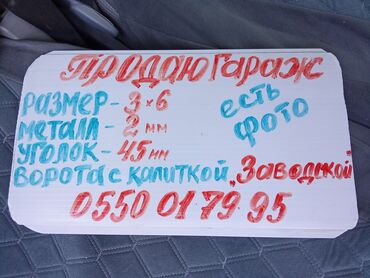 ПРОДАЮ Гараж
РАЗМЕР - 3 х 6
МЕТАЛЛ - 2 мм
УГОЛОК - 45 мм
есть фото
ВОРОТА с КАЛИТКОЙ „Заводской"
0550 01 79 95